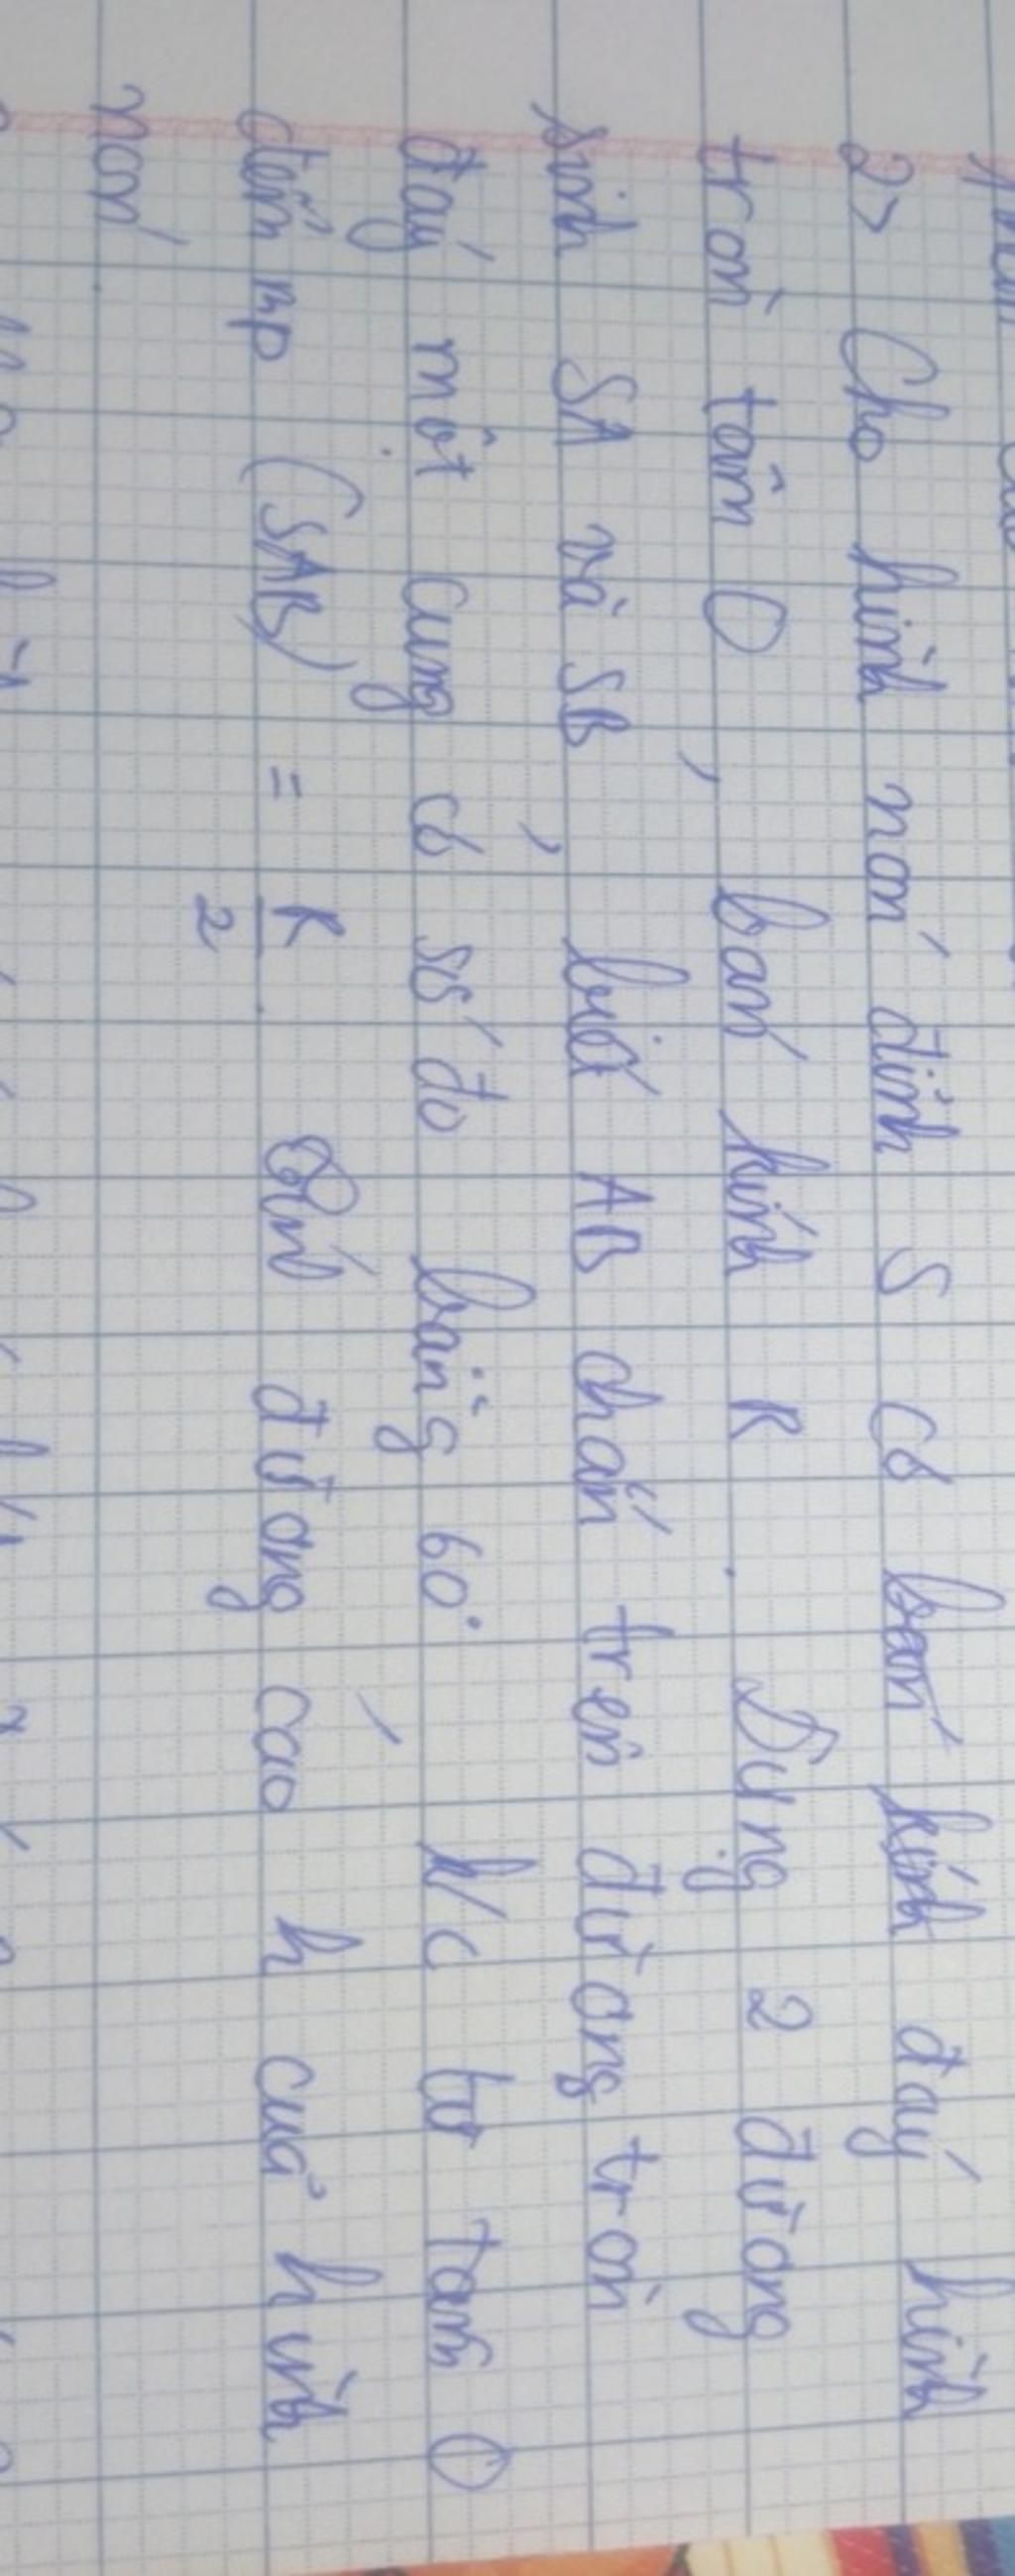 2> Cho hình nón đỉnh S có bán kính đáy hình
tròn tâm O, bán kính R. Dựng 2 đường
sinh SA và SB, biết AB chắn trên đường tròn
đáy một cung có số đo bằng 60°, k/c từ tâm O
đến mp (SAB) = R/2. Tính đường cao h của hình
nón.